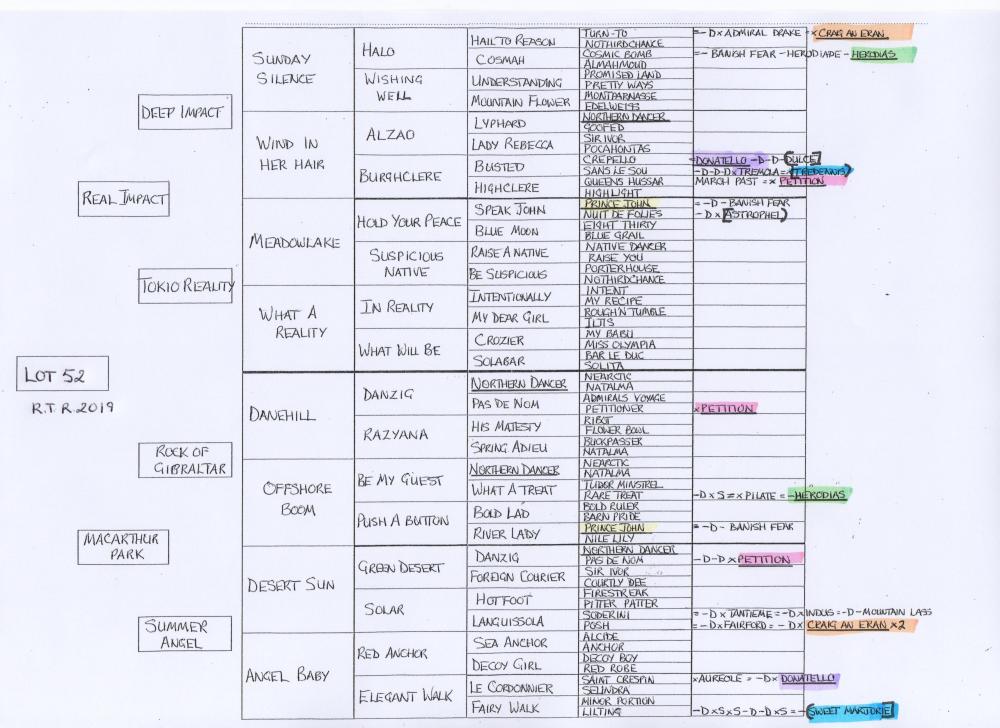 LOT 52
R.T.R. 2019
REAL IMPACT
MACARTHUR
PARK
DEEP IMPACT
TOKIO REALITY
ROCK OF
GIBRALTAR
SUMMER
ANGEL
SUNDAY
SILENCE
WIND IN
HER HAIR
MEADOWLAKE
WHAT A
REALITY
DANEHILL
OFFSHORE
BOOM
DESERT SUN
ANGEL BABY
HALO
WISHING
WELL
ALZAO
BURGHCLERE
HOLD YOUR PEACE
SUSPICIOUS
NATIVE
IN REALITY
WHAT WILL BE
DANZIG
RAZYANA
BE MY GUEST
PUSH A BUTTON
GREEN DESERT
SOLAR
RED ANCHOR
ELEGANT WALK
HAIL TO REASON
COSMAH
UNDERSTANDING
MOUNTAIN FLOWER
LYPHARD
LADY REBECCA
BUSTED
HIGHCLERE
SPEAK JOHN
BLUE MOON
RAISE A NATIVE
BE SUSPICIOUS
INTENTIONALLY
MY DEAR GIRL
CROZIER
SOLABAR
NORTHERN DANCER
PAS DE NOM
HIS MATESTY
SPRING ADIEU
NORTHERN DANCER
WHAT A TREAT
BOLD LAD
RIVER LADY
DANZIG
FOREIGN COURIER
HOTFOOT
LANGUISSOLA
SEA ANCHOR
DECOY GIRL
LE CORDONNIER
FAIRY WALK
TURN-TO
NOTHIRDCHANCE
COSMIC BOMB
ALMAHMOUD
PROMISED LAND
PRETTY WAYS
MONTPARNASSE
EDELWEISS
NORTHERN DANCER
GOOFED
SIR IVOR
POCAHONTAS
CREPELLO
SANS LE SOU
QUEENS HUSSAR
HIGHLIGHT
PRINCE JOHN
NUIT DE FOLIES
EIGHT THIRTY
BLUE GRAIL
NATIVE DANCER
RAISE YOU
PORTERHOUSE
NOTHIRDCHANCE
INTENT
MY RECIPE
ROUGH'N TUMBLE
ILTIS
MY BABU
MISS OLYMPIA
BAR LE DUC
SOLITA
NEARCTIC
NATALMA
ADMIRALS VOYAGE
PETITIONER
RIBOT
FLOWER BOWL
BUCKPASSER
NATALMA
NEARCTIC
NATALMA
TUDOR MINSTREL
RARE TREAT
BOLD RULER
BARN PRIDE
PRINCE JOHN
NILE LILY
NORTHERN DANCER
PAS DE NOM
SIR IVOR
COURTLY DEE
FIRESTREAK
PITTER PATTER
SODERINI
POSH
ALCIDE
ANCHOR
DECOY BOY
RED ROBE
SAINT CRESPIN
SELINDRA
MINOR PORTION
LILTING
=-D x ADMIRAL DRAKE = x CRAIG AN ERAN
=- BANISH FEAR - HERODIADE - HERODIAS
-DONATELLO -D-D-[DULCE]
-D-D-D x TREMOLA = x (TREDENNIS)
MARCH PAST = x PETITION
= -D - BANISH FEAR
-D x [ASTROPHEL)
x PETITION
-D x S = x PILATE = - HERODIAS
= -D - BANISH FEAR
-D-D x PETITION
= -D x TANTIEME = -D x INDUS = -D - MOUNTAIN LASS
= -D x FAIRFORD = - D x CRAIG AN ERAN x2
x AUREOLE = -D x DONATELLO
-D x S x S -D -D x S = -(SWEET MARJORIE]